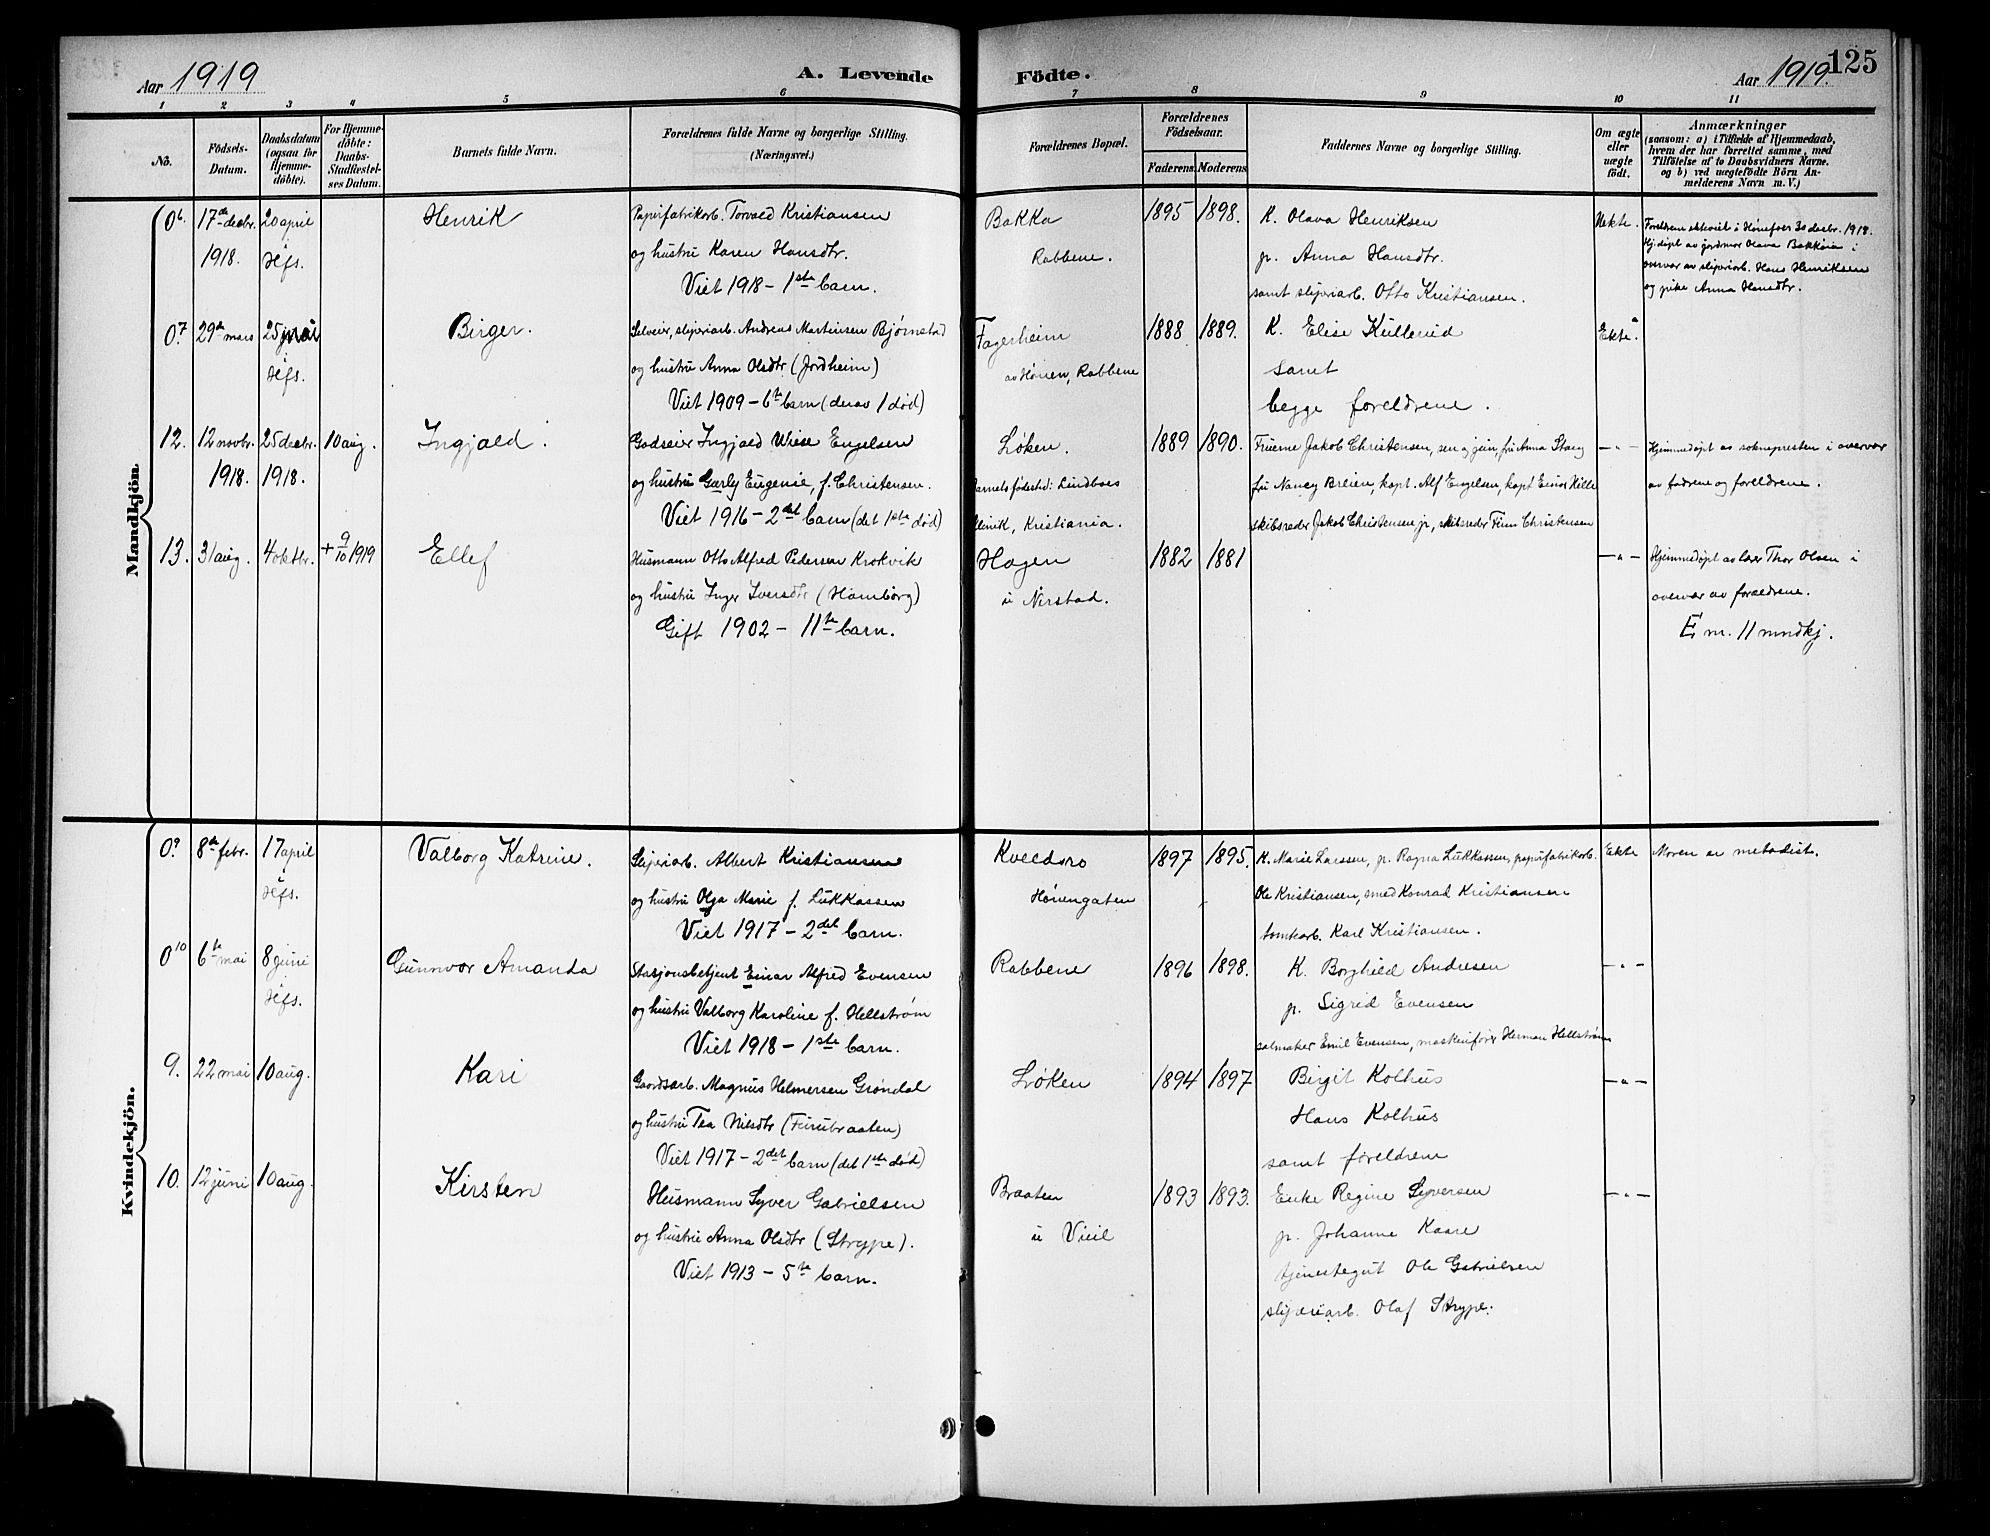 Aar 1919
A. Levende
Födte.
Aar 1919.
125
1 2 3 4 5 6 7 8 9 10 11
No.
Födsels-
Datum.
Daabsdatum
(ogsaa for
Hjemme-
döbte).
For Hjemme-
döbte:
Daabs-
Stadfestel-
ses Datum.
Barnets fulde Navn.
Forældrenes fulde Navne og borgerlige Stilling.
(Næringsvei.)
Forældrenes Bopæl.
Forældrenes
Födselsaar.
Faderens. Moderens.
Faddernes Navne og borgerlige Stilling.
Om ægte
eller
uægte
födt.
Anmærkninger
(saasom: a) i Tilfælde af Hjemmedaab,
hvem der har forrettet samme, med
Tilföielse af to Daabsvidners Navne.
og b) ved uægtefödte Börn An-
melderens Navn m.V.)
Mandkjön.
06. 17de decbr.
1918.
20 april
i Hfs.
Henrik
Papirfabrikarb. Torvald Kristiansen
og hustru Karen Hansdtr.
Viet 1918 - 1ste barn.
Bakka
Rabbene.
1895 1898.
K. Olava Henriksen
p. Anna Hansdtr.
samt sliperiarb. Otto Kristiansen.
Uekte.
Foreldrene egteviet i Hønefoss 30 decbr. 1918.
Hj.døpt av jordmor Olava Bakken i
overvær av sliperiarb. Hans Henriksen
og pike Anna Hansdtr.
07. 29de mars
25 mai
i Hfs.
Birger.
Selveier, sliperiarb. Andreas Martinsen Bjørnstad
og hustru Anna Olsdtr (Jordheim)
Viet 1909 - 6te barn (derav 1 død)
Fagerheim
av Hønen, Rabbene
1888 1889.
K. Elise Kullerud
samt
begge foreldrene.
Ekte.
12. 12 novbr.
1918.
25 decbr.
1918.
10 aug.
Ingjald.
Godseier Ingjald Wiese Engelsen
og hustru Gærly Eugenie, f. Christensen.
Viet 1916 - 2det barn (det 1ste død)
Løken.
Barnets fødested: Lindboes
klinik, Kristiania.
1889 1890.
Fruerne Jakob Christensen, sen og jun, fru Anna Stang
fru Nancy Breien, kapt. Alf Engelsen, kapt Einar Hille
skibsreder Jakob Christensen jr, skibsreder Finn Christensen
- " -
Hjemmedøpt av sokneprosten i overvær
av fadrene og foreldrene.
13. 31 aug.
4 oktbr.
+ 9/10 1919
Ellef
Husmann Otto Alfred Pedersen Krokvik
og hustru Inger Iversdtr (Hamborg)
Gift 1902 - 11te barn.
Hagen
u Nerstad.
1882 1881
- " -
Hjemmedøpt av lærer Thor Olsen i
overvær av forældrene.
E m. 11 mndkj.
Kvindekjön.
09. 8de febr.
17 april
i Hfs.
Valborg Katrine.
Sliperiarb. Albert Kristiansen
og hustru Olga Marie f. Lukkassen
Viet 1917 - 2det barn.
Kveldsro
Hønengaten
1897 1895.
K. Marie Larssen, p. Ragna Lukkassen, papirfabrikarb.
Ole Kristiansen, smed Konrad Kristiansen
tomtearb. Karl Kristiansen.
Ekte
Moren er metodist.
010 6te mai
8 juni
i Hfs.
Gunnvor Amanda
Stasjonsbetjent Einar Alfred Evensen
og hustru Valborg Karoline f. Hellstrøm
Viet 1918 - 1ste barn.
Rabbene
1896 1898.
K. Borghild Andresen
p. Sigrid Evensen
salmaker Emil Evensen, maskinfører Herman Hellstrøm
- " -
9. 22 mai
10 aug.
Kari
Gaardsarb. Magnus Helmersen Grøndal
og hustru Tea Nilsdtr (Furubraaten)
Viet 1917 - 2det barn (det 1ste død)
Løken
1894 1897
Birgit Kolhus
Hans Kolhus
samt foreldrene
- " -
10. 12 juni
10 aug.
Kirsten
Husmann Syver Gabrielsen
og hustru Anna Olsdtr (Strype).
Viet 1913 - 5te barn.
Braaten
u Viul
1893 1893.
Enke Regine Syversen
p. Johanne Kaare
tjenestegut Ole Gabrielsen
sliperiarb. Olaf Strype.
- " -